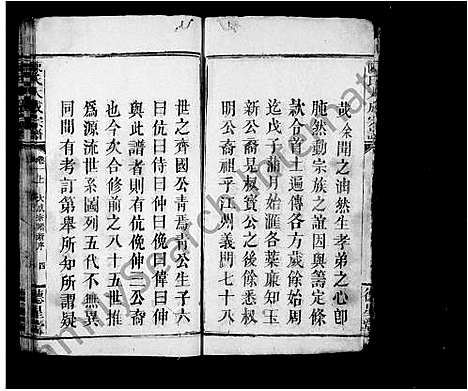 哉余聞之油然生孝弟之心卽
肫然動宗族之誼因與籌定條
款合首士遍傳各方歲餘始周
迄戊子蒲月始滙各葉廉知玉
新公裔是叔寳公之後餘悉叔
明公裔祖乎江州義門七十八
世之齊國公青焉青公生子六
曰伉曰侍曰仲曰俛曰偉曰伸
與此譜者則有伉俛伸三公裔
也今次合修前之八十五世推
爲源流世系國列五代不無異
同間有考訂第舉所知所謂疑
陳氏大成宗譜
卷上
四